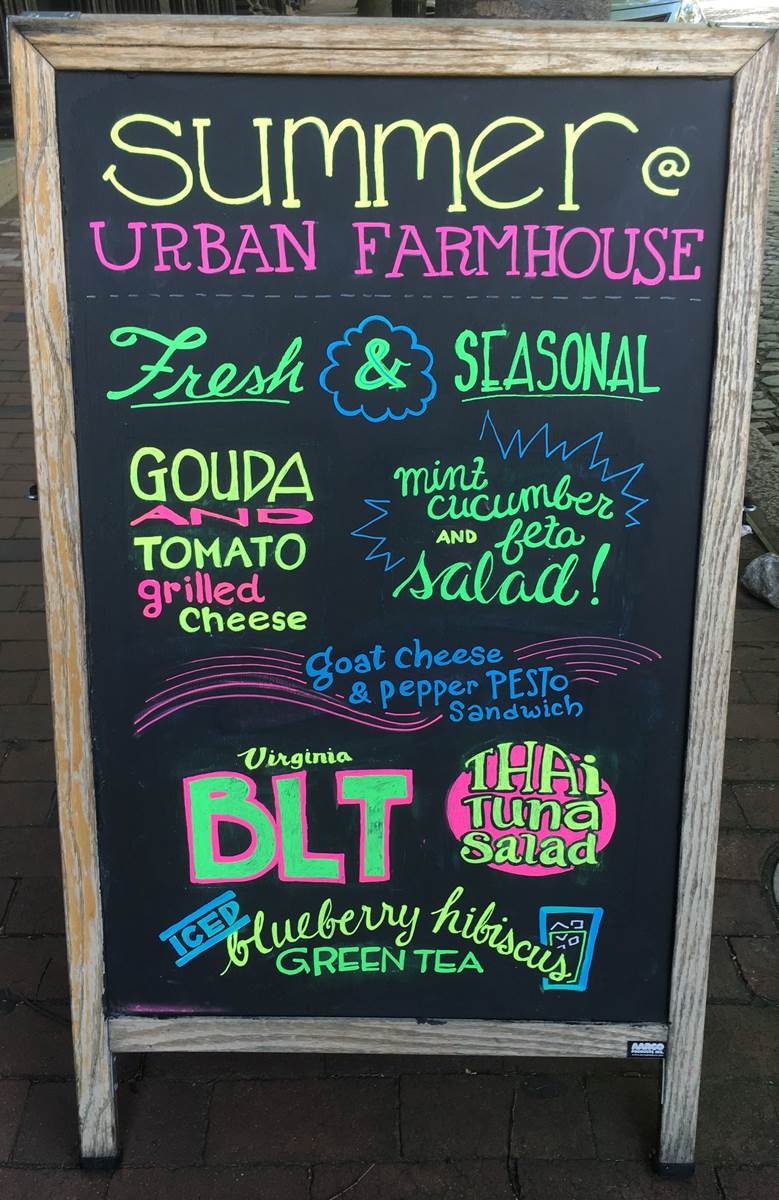 Summer @
URBAN FARMHOUSE
Fresh & SEASONAL
GOUDA
AND
TOMATO
grilled
Cheese
mint
cucumber
AND feta
salad!
goat cheese
& pepper PESTO
Sandwich
Virginia
BLT
THAi
Tuna
Salad
ICED blueberry hibiscus
GREEN TEA
AARCO
PRODUCTS, INC.